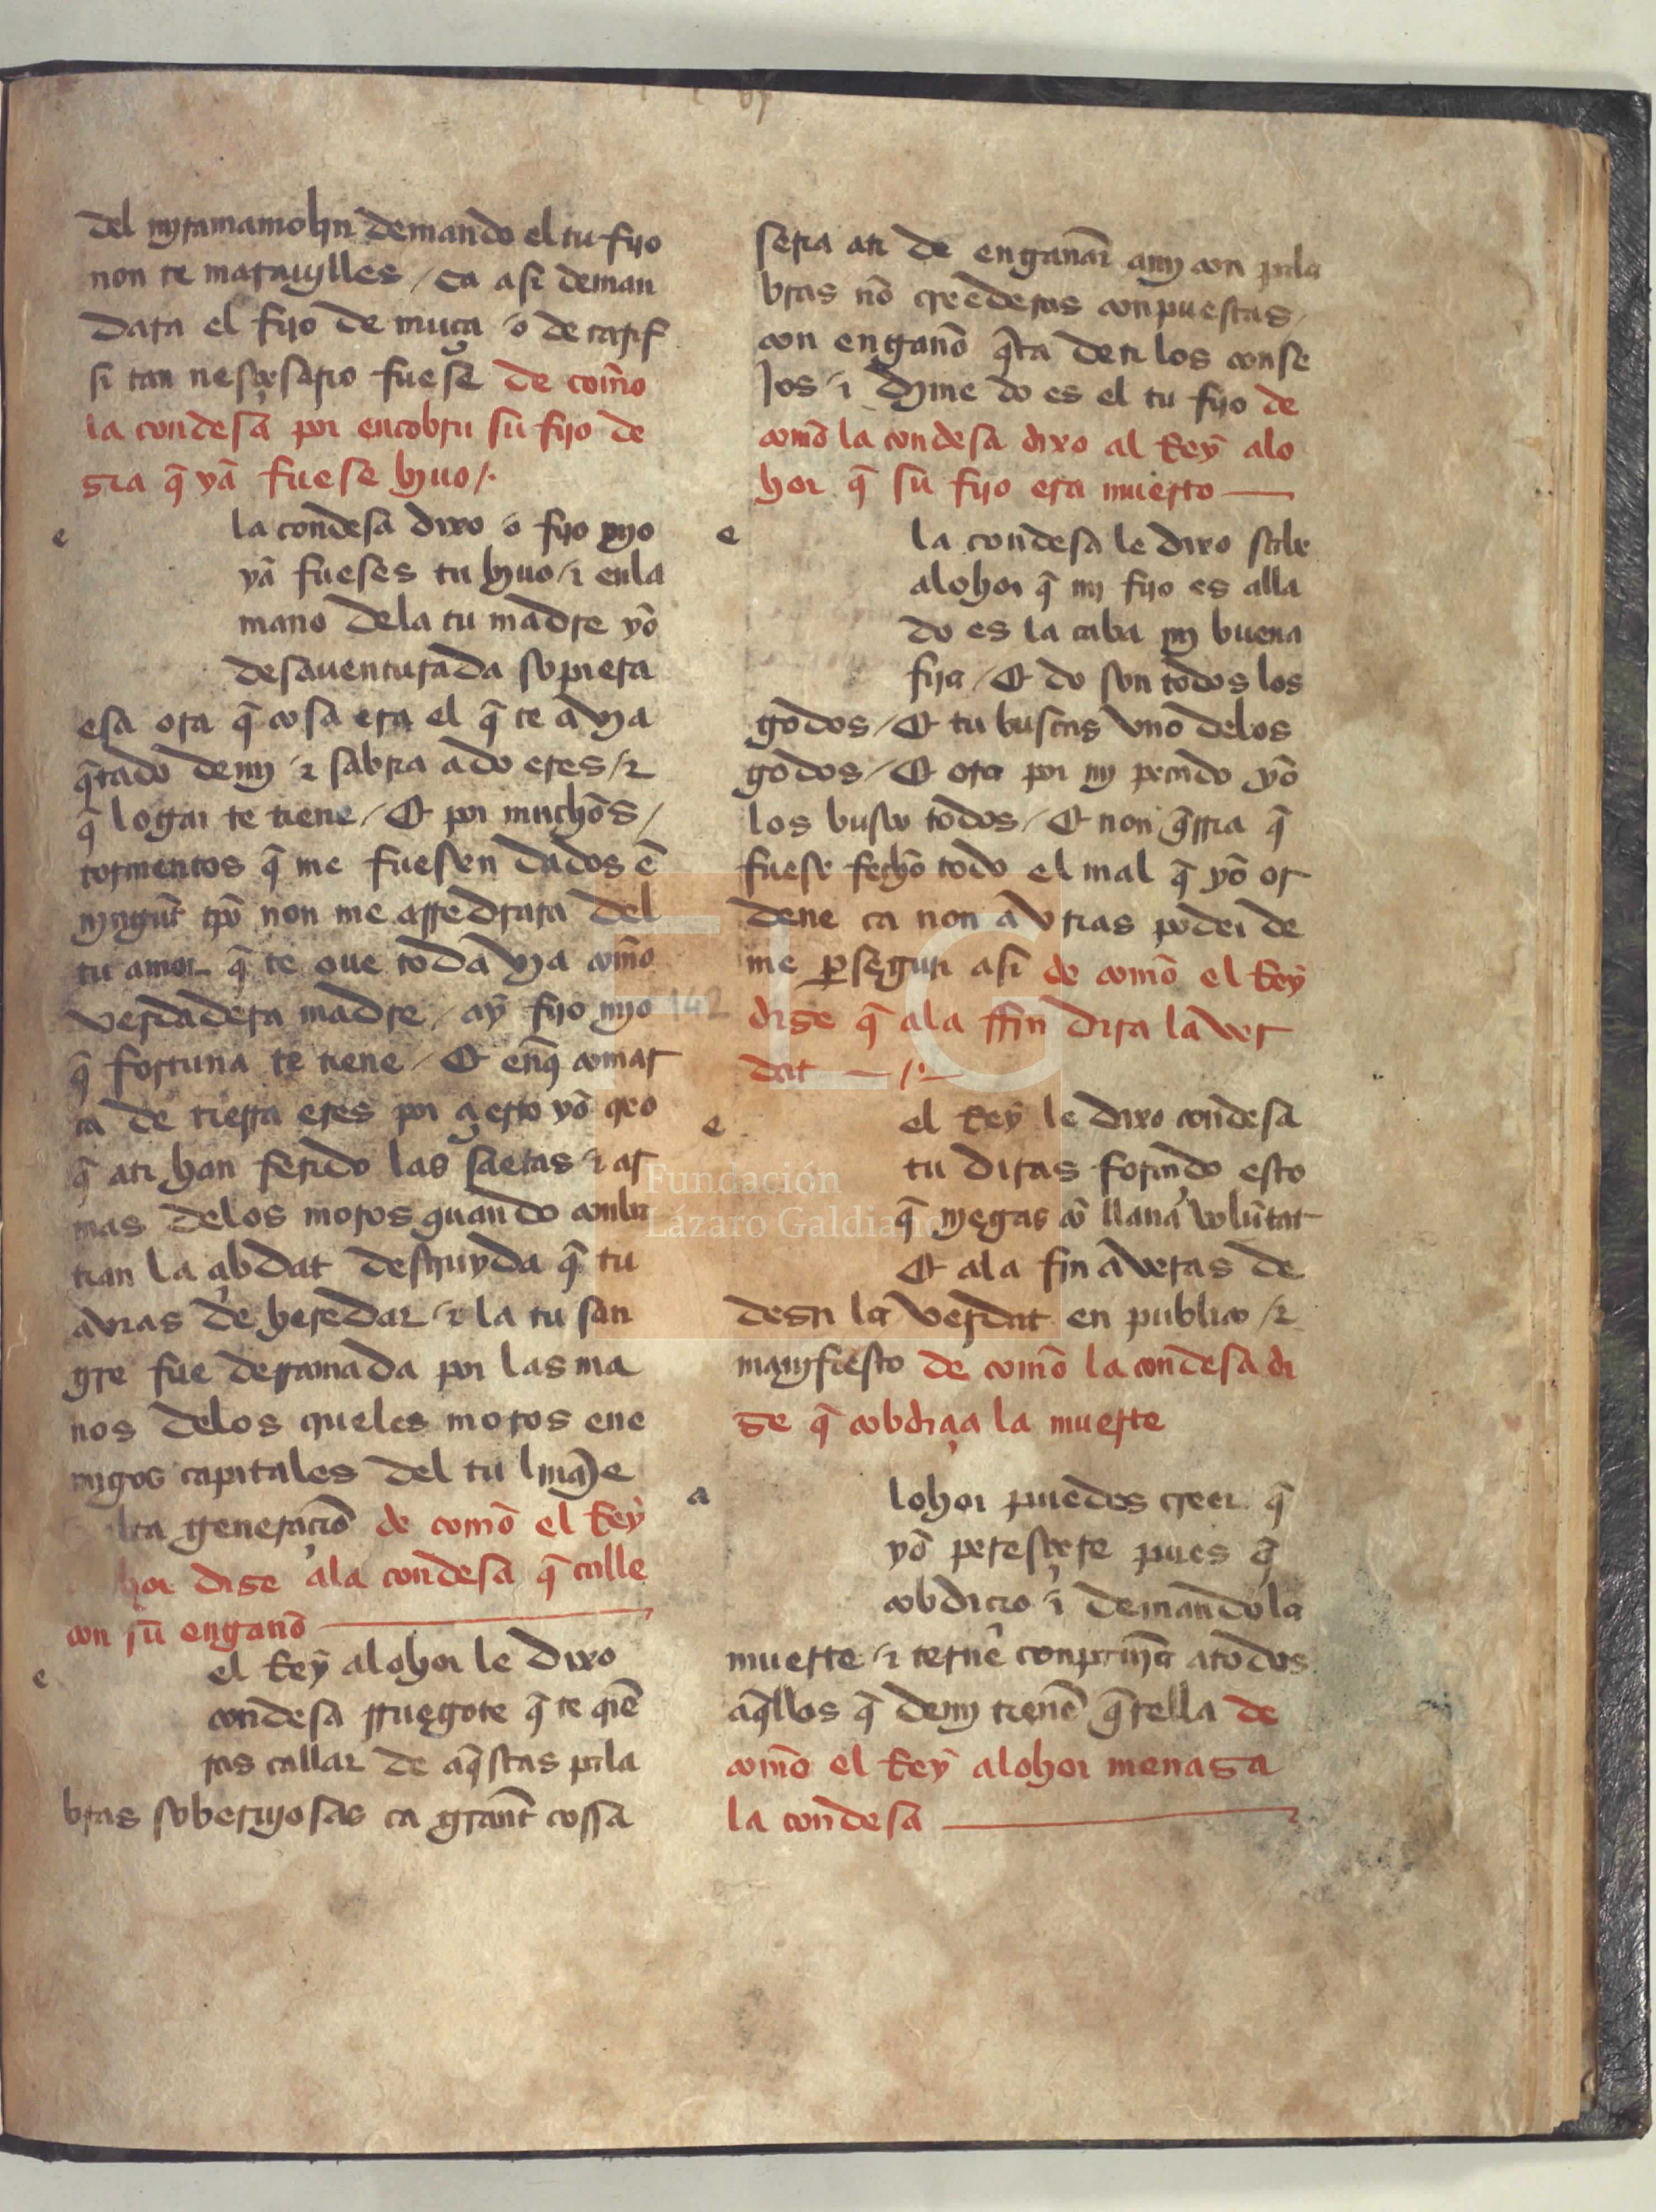 del myramamolyn demando el tu fijo
non te marauylles / ca asi deman
dara el fijo de muça o de tarif
si tan nesçesario fuese de com̃o
la condesa por encobrir su fijo de
zia q̃ ya fuese biuo /.
e la condesa dixo o fijo myo
ya fueses tu biuo / ⁊ en la
mano dela tu madre yo
desauenturada sopiera
esa ora q̃ cosa era el q̃ te avya
q̃tado de my ⁊ sabria ado eres / ⁊
q̃ logar te tiene / Et por muchos /
tormentos q̃ me fuesen dados ẽ
nyngũt tp̃o non me arredrara del
tu amor q̃ te oue toda vya com̃o
verdadera madre / ay fijo myo
q̃ fortuna te tiene / Et enq̃ comar
ca de tierra eres por çierto yo creo
q̃ ati han ferido las saetas ⁊ ar
mas delos moros quando conba
tian la çibdat destruyda q̃ tu
avias de heredar ⁊ la tu san
gre fue derramada por las ma
nos delos crueles moros ene
migos capitales del tu linaje
alta generaçiõ de com̃o el Rey
hor dize ala condesa q̃ calle
con su engano
e el Rey alohor le dixo
condesa rruegote q̃ te q̃ie
ras callar de aq̃stas pala
bras soberujosas ca grant cossa
seria ati de enganar amy con pala
bras nõ creederas conpuestas /
con engano q̃ta deti los conse
jos ⁊ dyme do es el tu fijo de
com̃o la condesa dixo al Rey alo
hor q̃ su fijo era muerto
e la condesa le dixo sabe
alohor q̃ mi fijo es alla
do es la caba my buena
fija / Et do son todos los
godos / Et tu buscas vno delos
godos / Et ora por my pecado yo
los busco todos / Et non q̃rria q̃
fuese fecho todo el mal q̃ yo or
dene ca non avrias poder de
me perseguir asi de com̃o el Rey
dize q̃ ala ffin dira la ver
dat
e el Rey le dixo condesa
tu diras forçado esto
q̃ niegas cõ llana volũtat
Et ala fin averas de
dezir la verdat en publico / ⁊
manyfiesto de com̃o la condesa di
ze q̃ cobdiçia la muerte
a lohor puedes creer q̃
yo peresçere pues q̃
cobdiçio ⁊ demando la
muerte ⁊ terne conpanya atodos
aq̃llos q̃ demy tienẽ q̃rella de
com̃o el Rey alohor menaza
la condesa
142
FLG
Fundación
Lázaro Galdiano